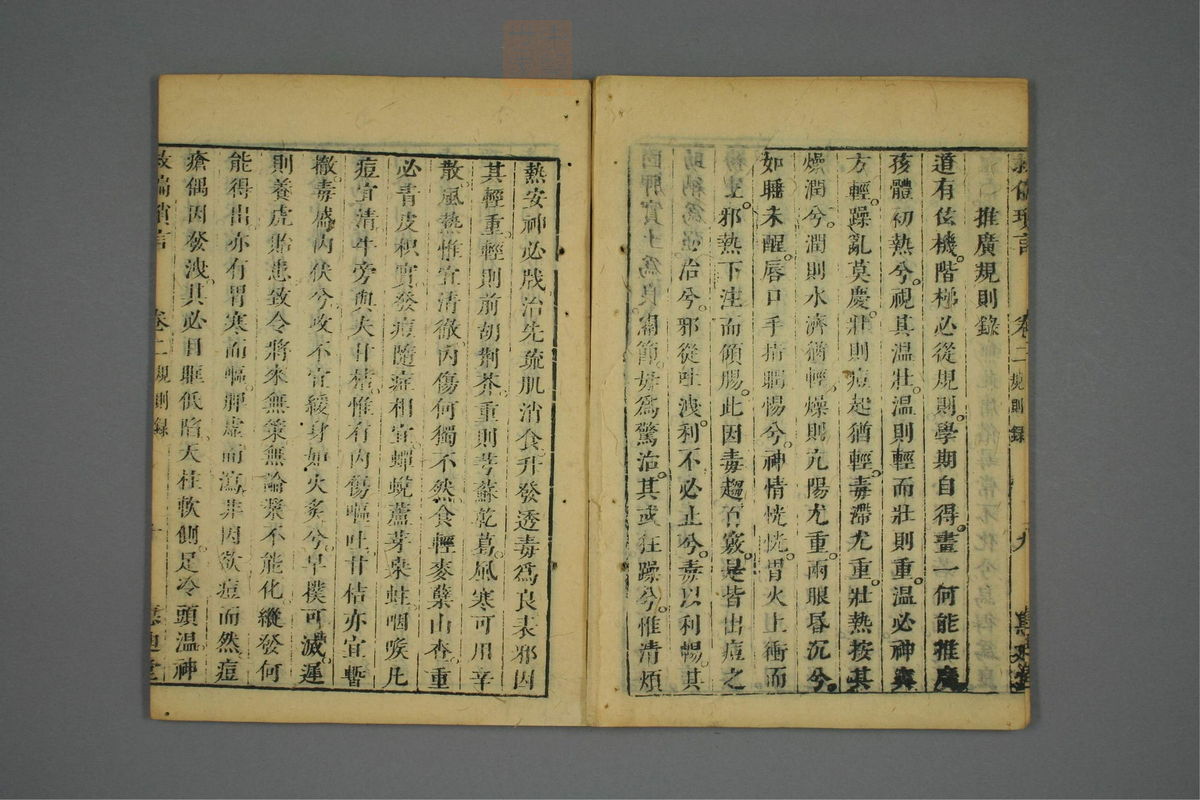 救偏瑣言 卷二 規則錄 九
推廣規則錄
道有依機階梯必從規則學期自得畫一何能推廣
孩體初熱兮視其温壯温則輕而壯則重温必神爽
方輕躁亂莫慶壯則痘起猶輕毒滯尤重壯熱按其
燥潤兮潤則水濟猶輕燥則亢陽尤重兩眼昏沉兮
如睡未醒唇口手搐𥆧惕兮神情恍恍胃火上衝而
邪熱下注而傾腸此因毒趨百竅是皆出痘之
治兮邪從吐洩利不必止兮毒以利暢其
為驚治其或狂躁兮惟清煩
熱安神必戕治先疏肌消食升發透毒為良表邪因
其輕重輕則前胡荆芥重則芎蘇乾葛風寒可用辛
散風熱惟宜清徹內傷何獨不然食輕麥蘖山查重
必青皮枳實發痘隨症相宜蟬蛻蘆芽桑蛀咽喉凡
痘宜清牛旁與夫甘桔惟有內傷嘔吐甘桔亦宜暫
撤毒盛內伏兮攻不宜緩身如火炙兮早撲可滅遲
則養虎貽患致令將來無策無論漿不能化縱發何
能得出亦有胃寒而嘔脾虛而瀉非因欲痘而然痘
瘡偶因發洩其必目眶低陷大柱軟側足冷頭温神
救偏瑣言 卷二 規則錄 十